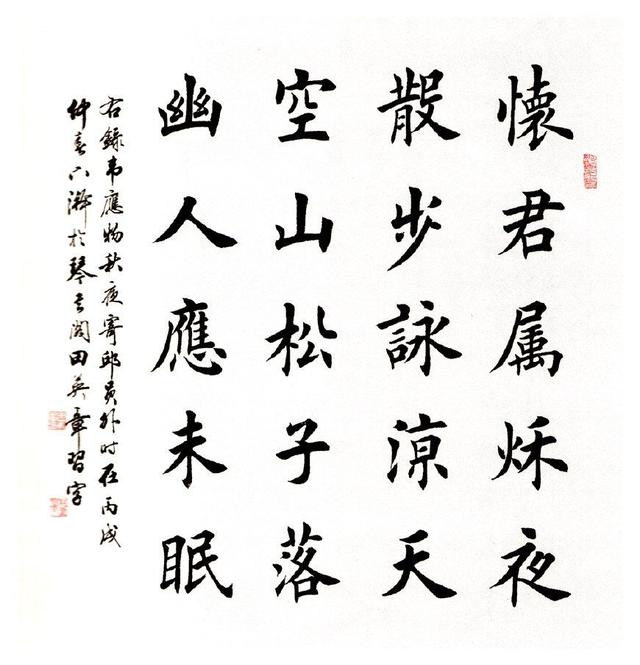 懷君属秌夜
散步詠涼天
空山松子落
幽人應未眠
右錄韦應物秋夜寄邱員外时在丙戌
仲春下澣於琴阁田英章習字